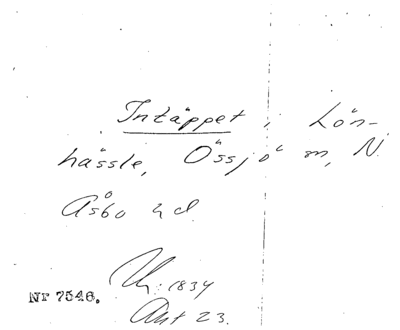 Intäppet, Lön-
hässle, Össjö sn, N.
Åsbo hd.
Nr 7546. Lh: 1834
Akt 23.